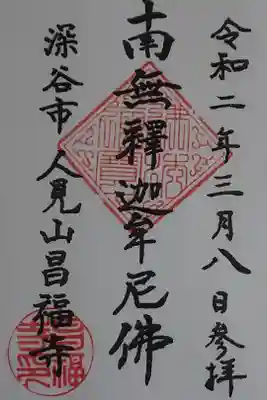 令和二年三月八日参拜
南無釋迦牟尼佛
深谷市人見山昌福寺